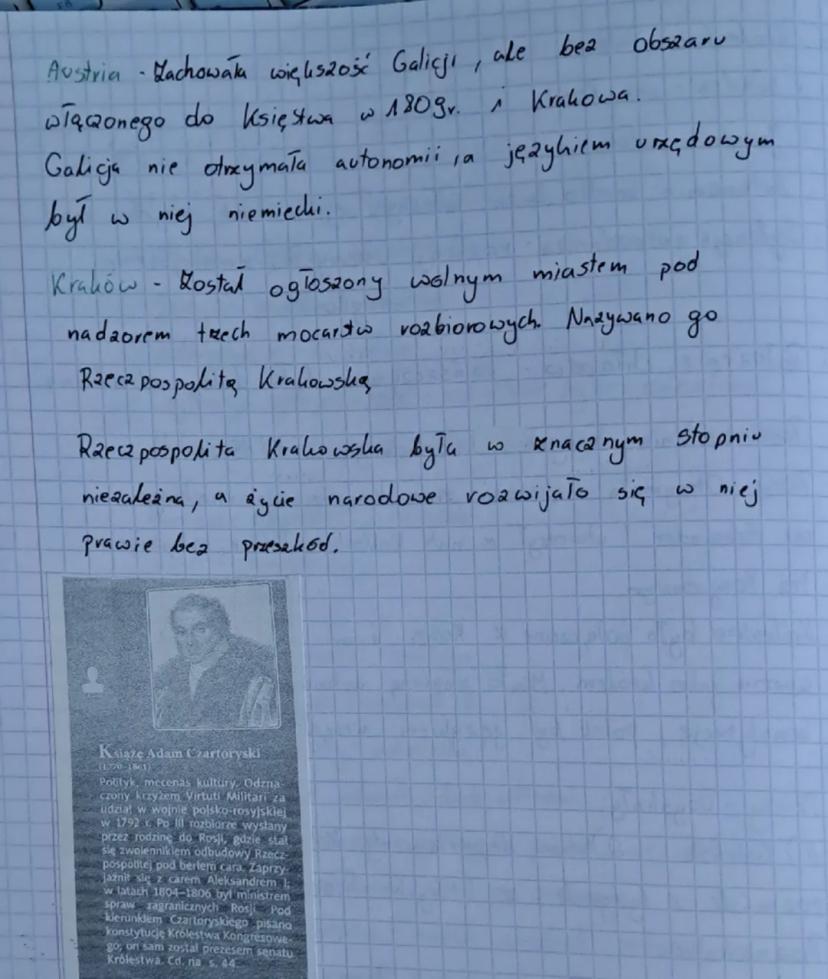 Austria - Zachowała większość Galicji, ale bez obszaru
włączonego do Księstwa w 1809r. i Krakowa.
Galicja nie otrzymała autonomii, a językiem urzędowym
był w niej niemiecki.
Kraków - Został ogłoszony wolnym miastem pod
nadzorem trzech mocarstw rozbiorowych. Nazywano go
Rzecz pospolitą Krakowską
Rzecz pospolita Krakowska była w znacznym stopniu
niezależna, a życie narodowe rozwijało się w niej
prawie bez przeszkód.
Książę Adam Czartoryski
(1770-1861)
Polityk, mecenas kultury. Odzna-
czony krzyżem Virtuti Militari za
udział w wojnie polsko-rosyjskiej
w 1792 r. Po III rozbiorze wysłany
przez rodzinę do Rosji, gdzie stał
się zwolennikiem odbudowy Rzecz-
pospolitej pod berłem cara. Zaprzy-
jaźnił się z carem Aleksandrem I;
w latach 1804-1806 był ministrem
spraw zagranicznych Rosji. Pod
kierunkiem Czartoryskiego pisano
konstytucję Królestwa Kongresowe-
go, on sam został prezesem senatu
Królestwa. Cd. na s. 44